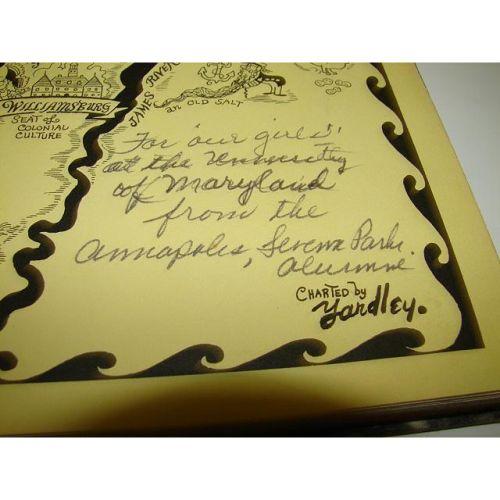 WILLIAMSBURG
SEAT of
COLONIAL
CULTURE
JAMES RIVER
an OLD SALT
For "our girls"
at the University
of Maryland
from the
Annapolis, Severna Park
alumnae
CHARTED by
Yardley.